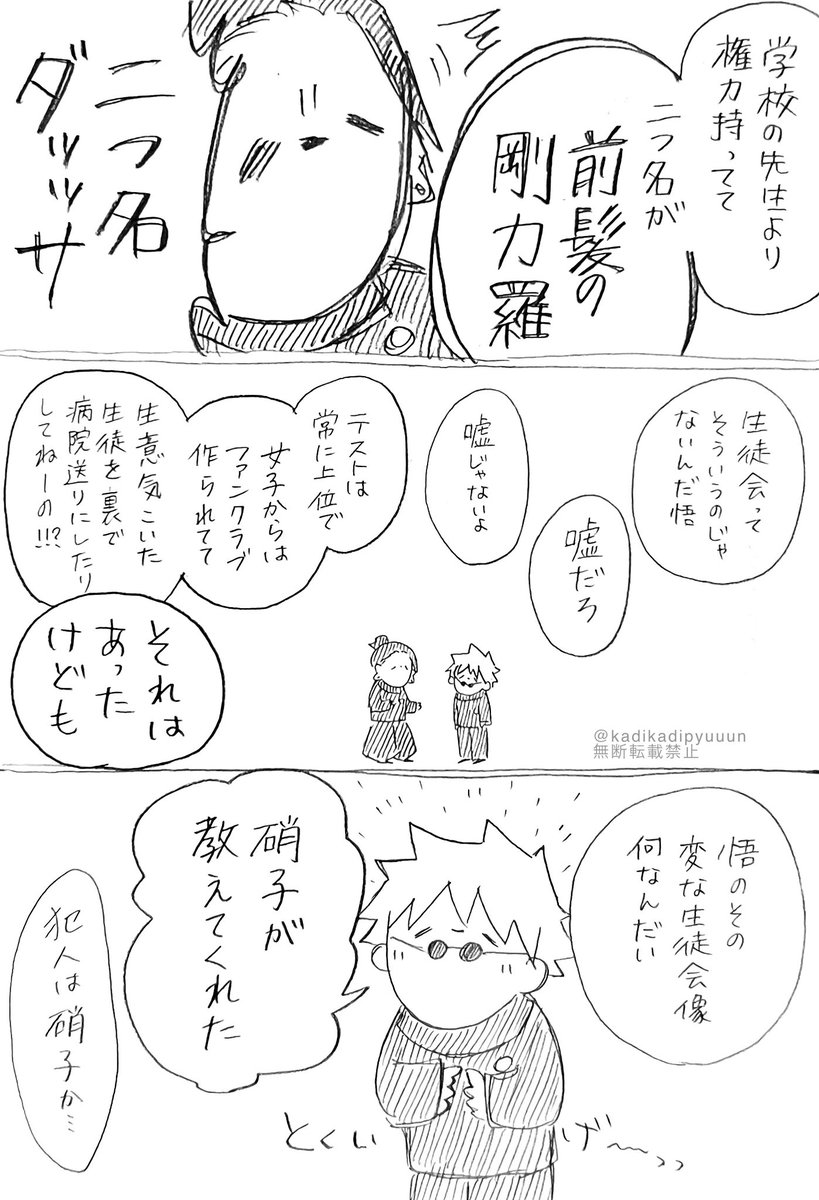 学校の先生より
権力持ってて
二つ名が
前髪の
剛力羅
二つ名
ダッッサ
生徒会って
そういうのじゃ
ないんだ悟
嘘だろ
嘘じゃないよ
テストは
常に上位で
女子からは
ファンクラブ
作られてて
生意気こいた
生徒を裏で
病院送りにしたり
してねーの!!?
それは
あった
けども
@kadikadipyuuun
無断転載禁止
悟のその
変な生徒会像
何なんだい
硝子が
教えてくれた
とくいげ〜〜っっ
犯人は硝子か…